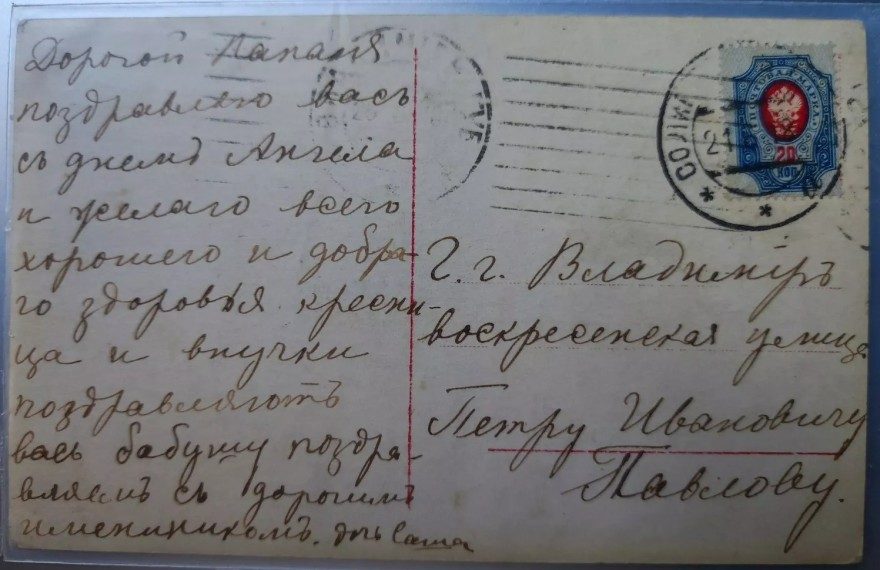 Дорогой Папаня
поздравляю васъ
съ днемъ Ангела
и желаю всего
хорошего и добра-
го здоровья кресни-
ца и внучки
поздравляютъ
васъ бабушу поздра-
вляемъ съ дорогимъ
имениникомъ. дочь Саша
Г. г. Владимиръ
воскресенская улица
Петру Ивановичу
Павлову.
ПОЧТОВАЯ МАРКА
20
КОП